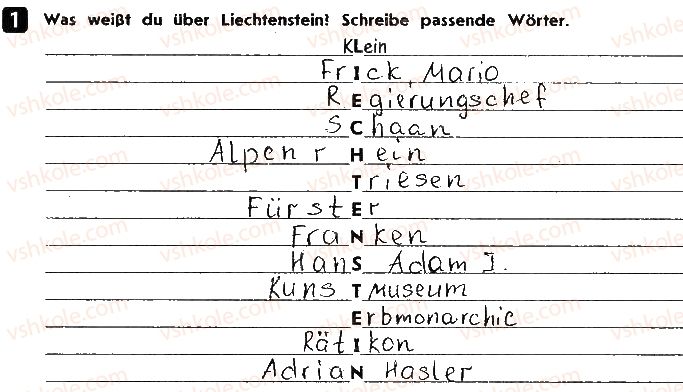 1 Was weißt du über Liechtenstein? Schreibe passende Wörter.
KLein
Frick, Mario
REgierungschef
SChaan
Alpen rHein
Triesen
FürstEr
FraNken
HanS Adam I.
KunsTmuseum
Erbmonarchic
RätIkon
AdriaN Hasler